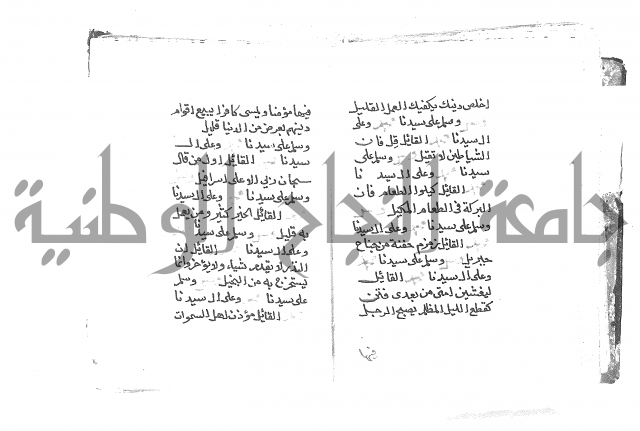 اخلص دينك يكفيك العمل القليل
وسلم على سيدنا وعلى
ال سيدنا القائل قل فان
الشياطين لا تقيل وسلم على
سيدنا وعلى ال سيدنا
القائل كيلوا الطعام فان
البركة في الطعام المكيل
وسلم على سيدنا وعلى ال سيدنا
القائل زمزم حفنة من جناح
جبريل وسلم على سيدنا
وعلى ال سيدنا القائل
ليغشين امتي من بعدي فتن
كقطع الليل المظلم يصبح الرجل
فيها
فيها مؤمنا ويمسي كافرا يبيع اقوام
دينهم بعرض من الدنيا قليل
وسلم على سيدنا وعلى ال
سيدنا القائل اول من قال
سبحان ربي الاعلى اسرافيل
وسلم على سيدنا وعلى ال سيدنا
القائل الخير كثير ومن يعمل
به قليل وسلم على سيدنا
وعلى ال سيدنا القائل ان
النذر لا يقدم شياء ولا يؤخر وانما
يستخرج به من البخيل وسلم
على سيدنا وعلى ال سيدنا
القائل مؤذن اهل السموات
جامعة النجاح الوطنية